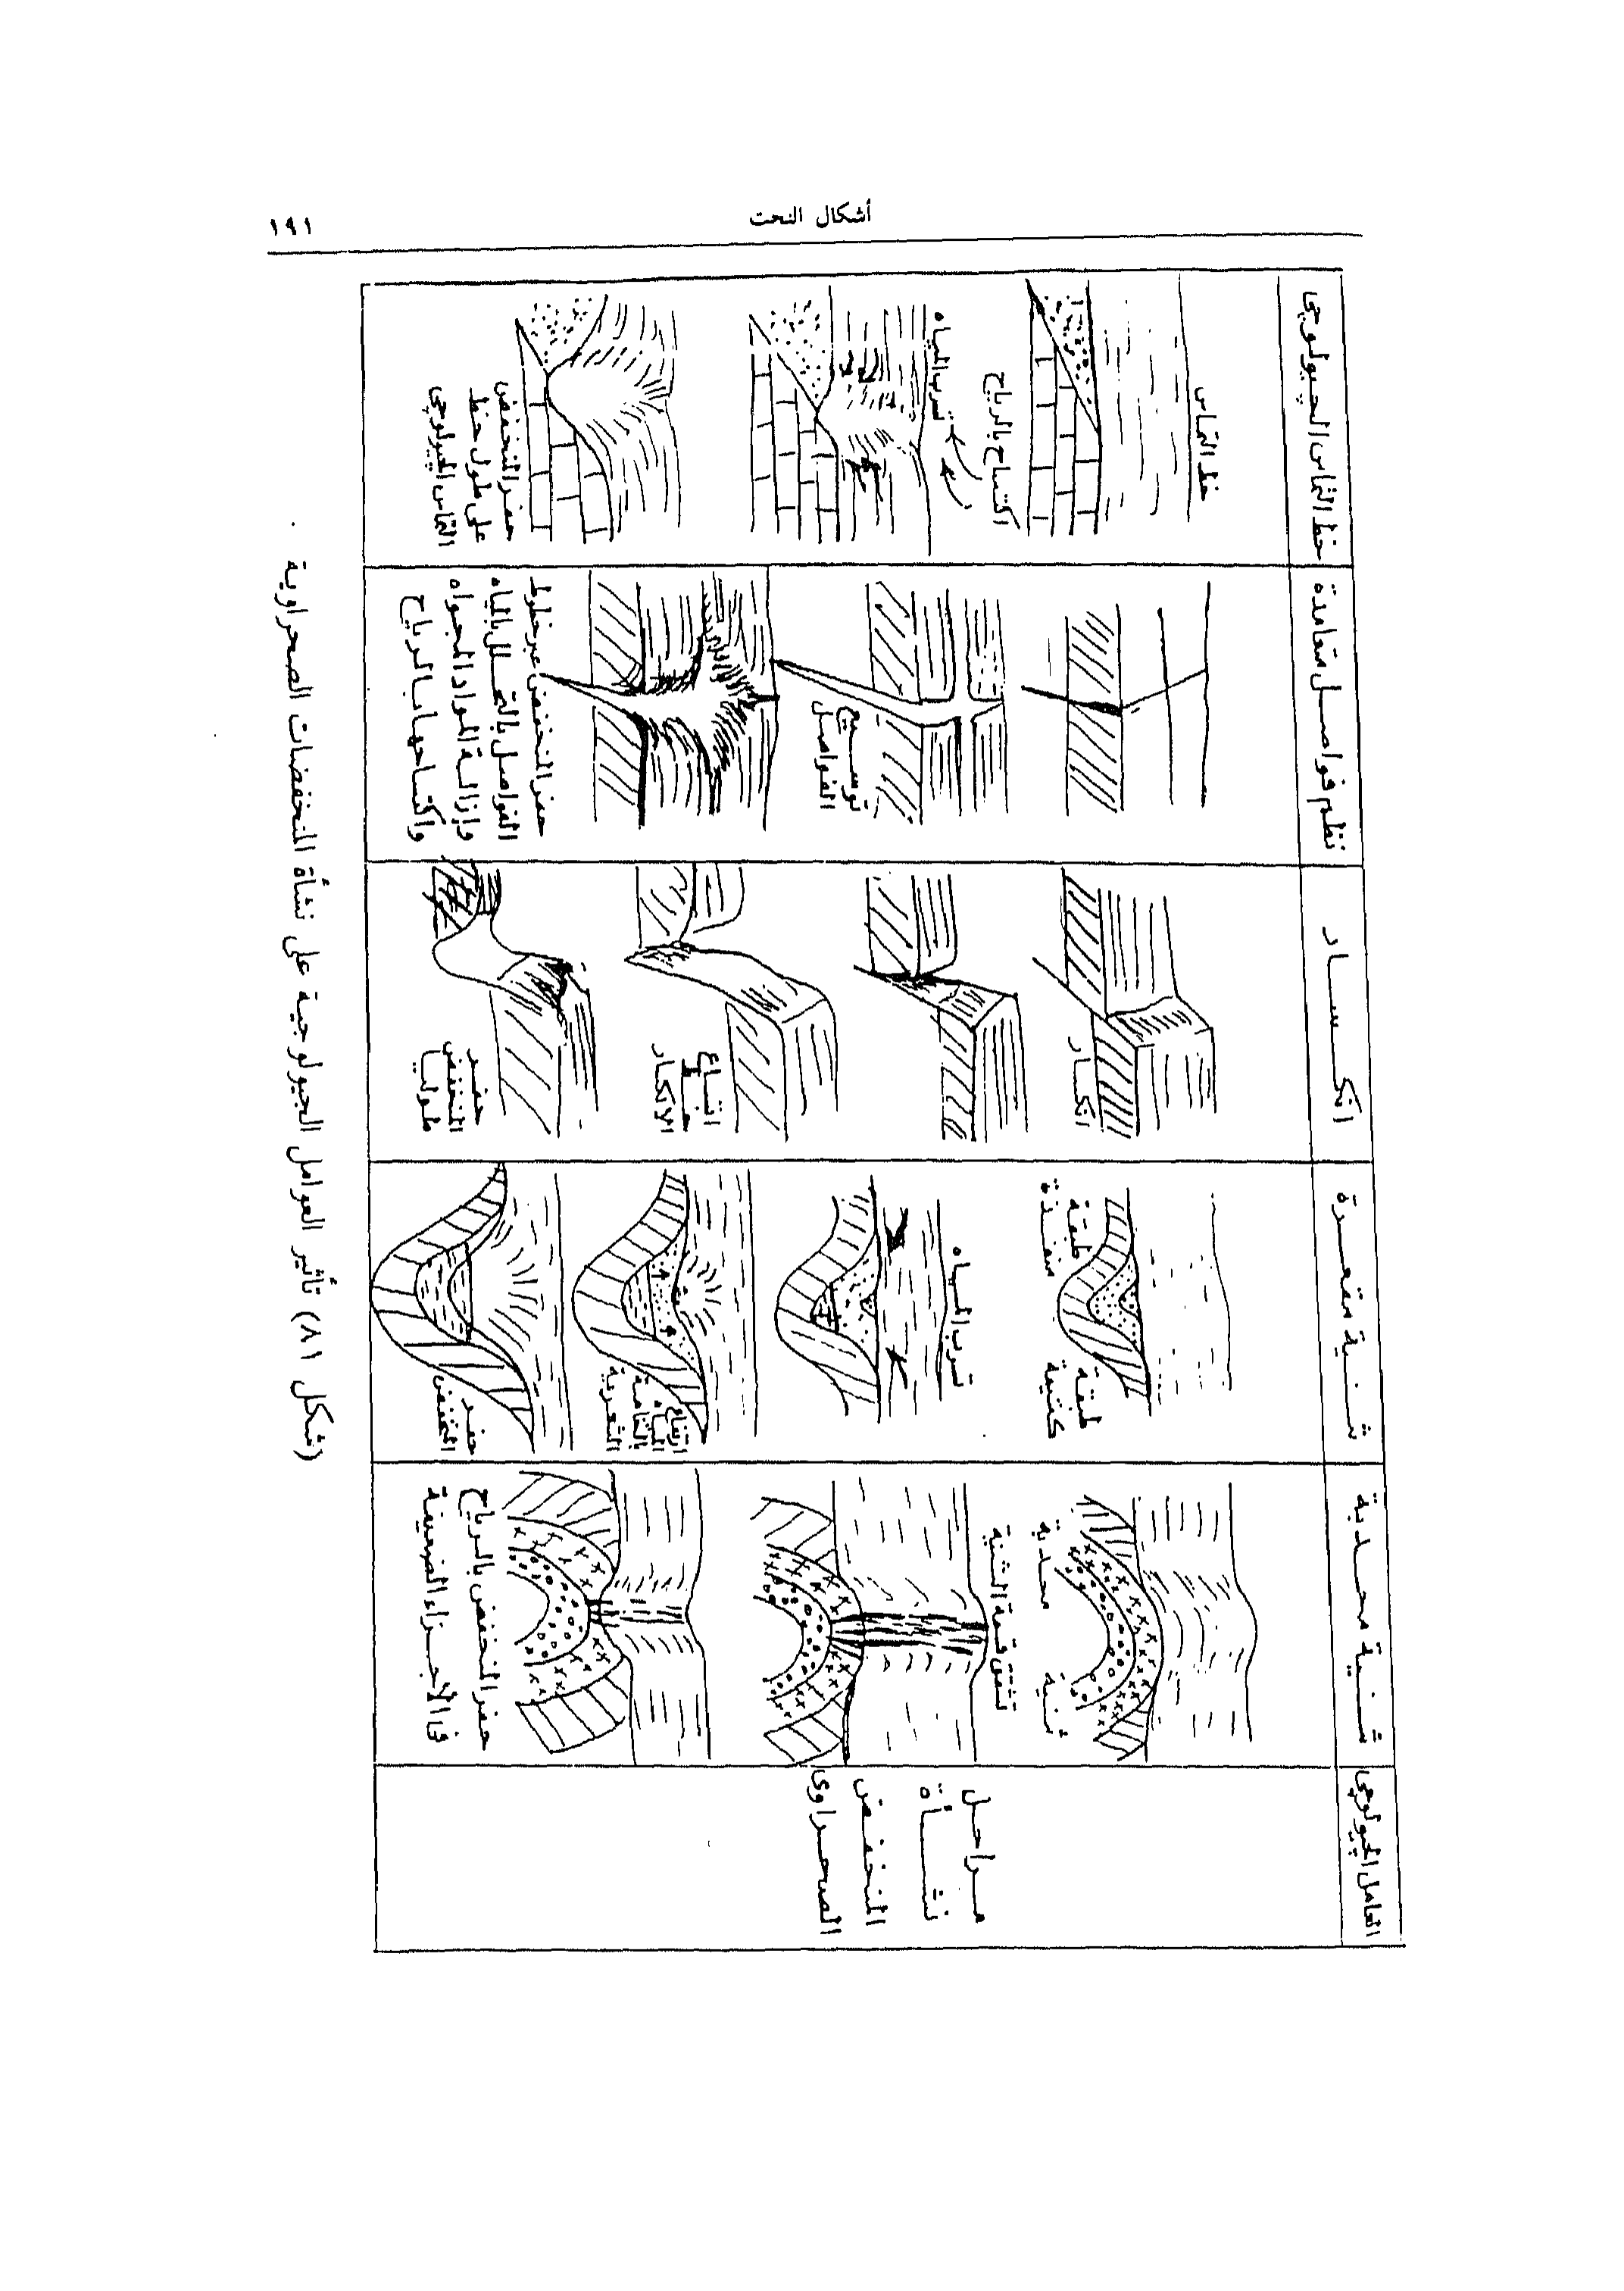 أشكال النحت
١٩١
العامل الجيولوجى
ثنية محدبة
ثنية مقعرة
انكسار
نظم فواصل متعامدة
خط التماس الجيولوجى
مراحل
نشأة
المنخفض
الصحراوى
ثنية محدبة
تشقق قمة الثنية
حفر المنخفض بالرياح
فى الأجزاء الضعيفة
طبقة
منفذة
طبقة
كتيمة
تسرب المياه
ارتفاع
المياه
التعرية
حفر
المنخفض
انكسار
اتساع
الانكسار
حفر
المنخفض
طوليا
توسيع
الفواصل
حفر المنخفض عبر خطوط
الفواصل بالتحلل بالمياه
وإزالة المواد المجواه
واكتساحها بالرياح
خط التماس
اكتساح بالرياح
تسرب المياه
حفر المنخفض
على طول خط
التماس الجيولوجى
(شكل ٨١) تأثير العوامل الجيولوجية على نشأة المنخفضات الصحراوية .